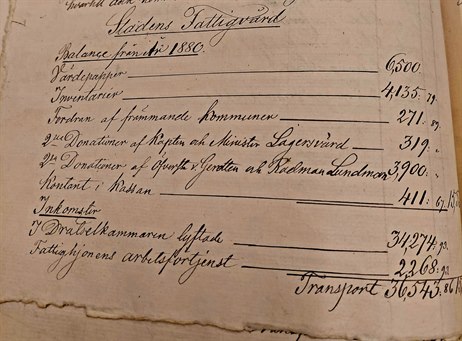 Stadens Fattigvård
Balance från år 1880.
Värdepapper 6,500.
Inventarier 4,135. 79.
Fordran af främmande kommuner 271. 89.
2ne Donationer af Kapten och Minister Lagersvärd 319. "
2ne Donationer af Öfverste v. Gerdten och Rådman Lundmon 3,900. "
Kontant i kassan 411. 67.
Inkomster
I Drätselkammaren lyftade 34274. 93.
Fattighjonens arbetsförtjenst 2,268. 93.
Transport 36,543. 86